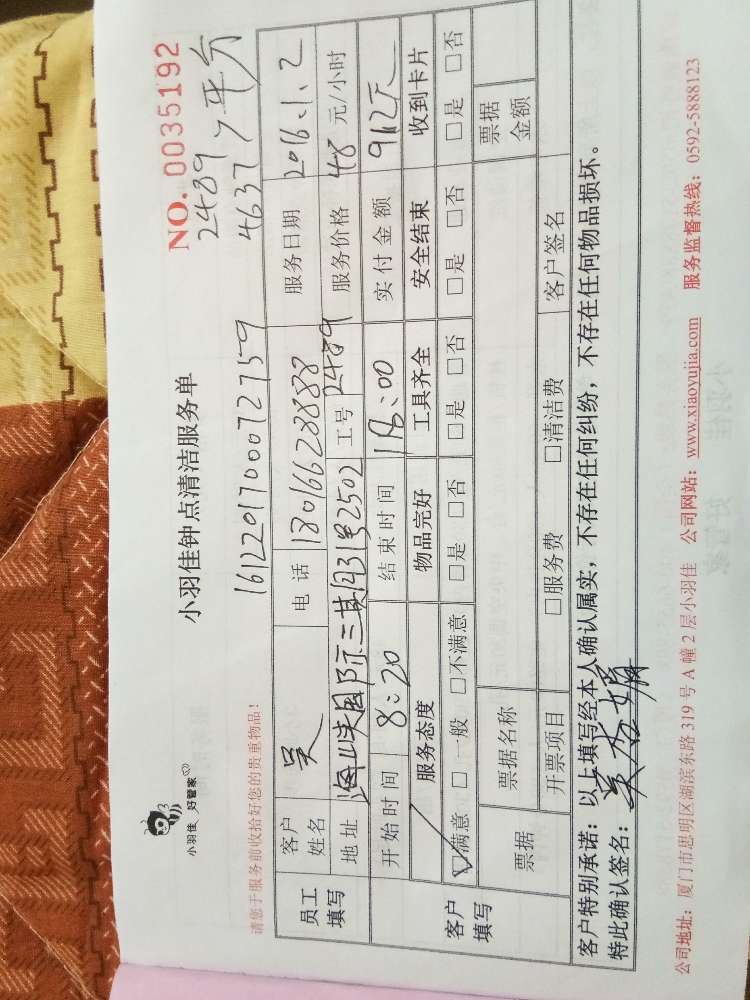 小羽佳 好管家
小羽佳钟点清洁服务单
NO. 0035192
2489
4637 > 平分
请您于服务前收拾好您的贵重物品!
1612201700072759
员工填写 客户姓名 吴 电话 18016628888 服务日期 2016.1.2
地址 海峡国际三期31号2502 工号 2489 服务价格 48 元/小时
开始时间 8:20 结束时间 18:00 实付金额 912元
客户填写 服务态度 物品完好 工具齐全 安全结束 收到卡片
☑满意 □一般 □不满意 □是 □否 □是 □否 □是 □否 □是 □否
票据 票据名称 票据金额
开票项目 □服务费 □清洁费 客户签名
客户特别承诺:以上填写经本人确认属实,不存在任何纠纷,不存在任何物品损坏。
特此确认签名:
公司地址:厦门市思明区湖滨东路 319 号 A 幢 2 层小羽佳 公司网站:www.xiaoyujia.com 服务监督热线:0592-5888123